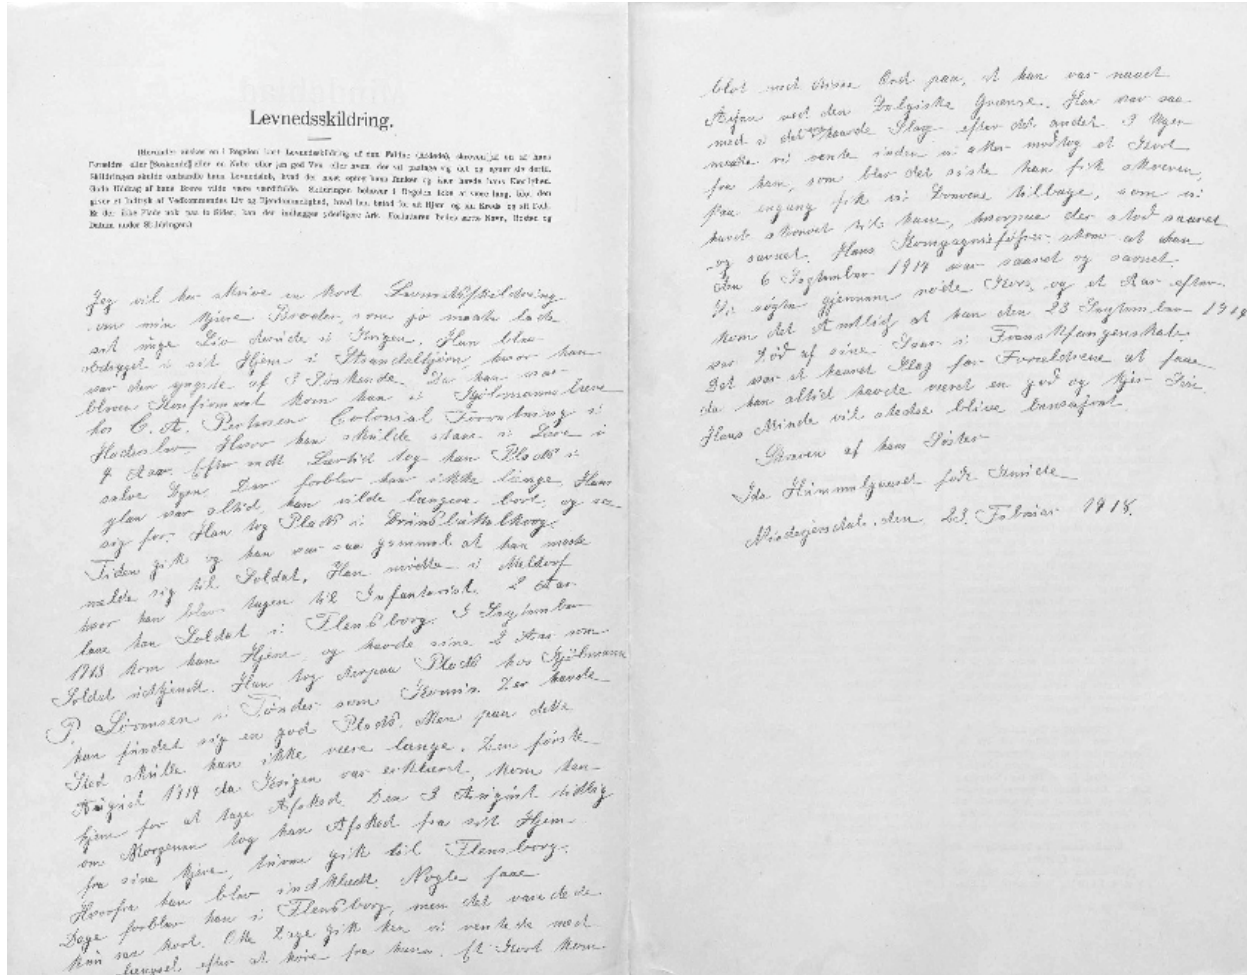 Levnedsskildring.
(Herunder ønskes en i Reglen kort Levnedsskildring af den Faldne (Døde), skreven af en af hans
Forældre eller [Søskende] eller en Nabo eller en god Ven eller hvem, der vil paatage sig det og egner sig dertil.
Skildringen skulde omhandle hans Levnedsløb, hvad der mest optog hans Tanker og især havde hans Kærlighed.
Gode Uddrag af hans Breve vilde være værdifulde. Skildringen behøver i Regelen ikke at være lang, blot den
giver et Indtryk af Vedkommendes Liv og Ejendommelighed, hvad han betød for sit Hjem og sin Kreds og sit Folk.
Er der ikke Plads nok paa to Sider, kan der indlægges yderligere Ark. Forfatteren bedes sætte Navn, Bosted og
Datum under Skildringen.)
Jeg vil her skrive en kort Levnedsskildring
om min kjære Broder, som jo maate lade
sit unge Liv i Krigen. Han blev
opdraget i sit Hjem i Strandelhjørn, hvor han
var den yngste af 3 Søskende. Da han var
bleven Konfirmeret kom han i Kjøbmannslære
hos C. A. Petersen Colonial Forretning i
Haderslev. Hvor han skulde staa i Lære i
4 Aar. Efter endt Læretid tog han Plads i
selve Byen. Der forblev han ikke længe, Hans
plan var altid, han vilde længere bort, og se
sig for. Han tog Plads i
Tiden gik og han var saa gammel at han maate
melde sig til Soldat. Han mødte i Meldorf
hvor han blev tagen til Infanterist. 2 Aar
laae han Soldat i Flensborg. I September
1913 kom han Hjem og havde sine 2 Aar som
Soldat udtjendt. Han tog derpaa Plads hos Kjøbmann
P. Sørensen i Tønder som Komis. Der havde
han fundet sig en god Plads. Men paa dette
Sted skulde han ikke være længe. Den første
August 1914 da Krigen var erklæret, kom han
hjem for at tage Afsked. Den 3 August tidlig
om Morgenen tog han Afsked fra sit Hjem
fra sine kjære, turen gik til Flensborg.
Hvorfra han blev indklædt. Nogle faae
Dage forblev han i Flensborg, men det varede
kun saa kort. Otte Dage gik hen vi ventede med
længsel efter at høre fra ham. Et Kort kom
blot med disse Ord paa, at han var naaet
ved den Belgiske Grænse. Han var saa
med i det haarde Slag efter det andet. 3 Uger
maate vi vente inden vi atter modtog et Kort
fra ham, som blev det sidste han fik skreven.
Paa engang fik vi Brevene tilbage, som vi
havde skrevet til ham, hvorpaa der stod saaret
og savnet. Hans Kompagniefører skrev at han
den 6 September 1914 var saaret og savnet.
Vi søgte gjennem røde Kors, og et Aar efter
kom det Amtlig at han den 23 September 1914
var Død af sine Saar i Fransk Fangenskab.
Det var et haaret Slag for Forældrene at faae
da han altid havde været en god og kjær Søn.
Hans Minde vil stedse blive bevaret.
Skreven af hans Søster
Ida Himmelgaard født
den 23. Februar 1918.